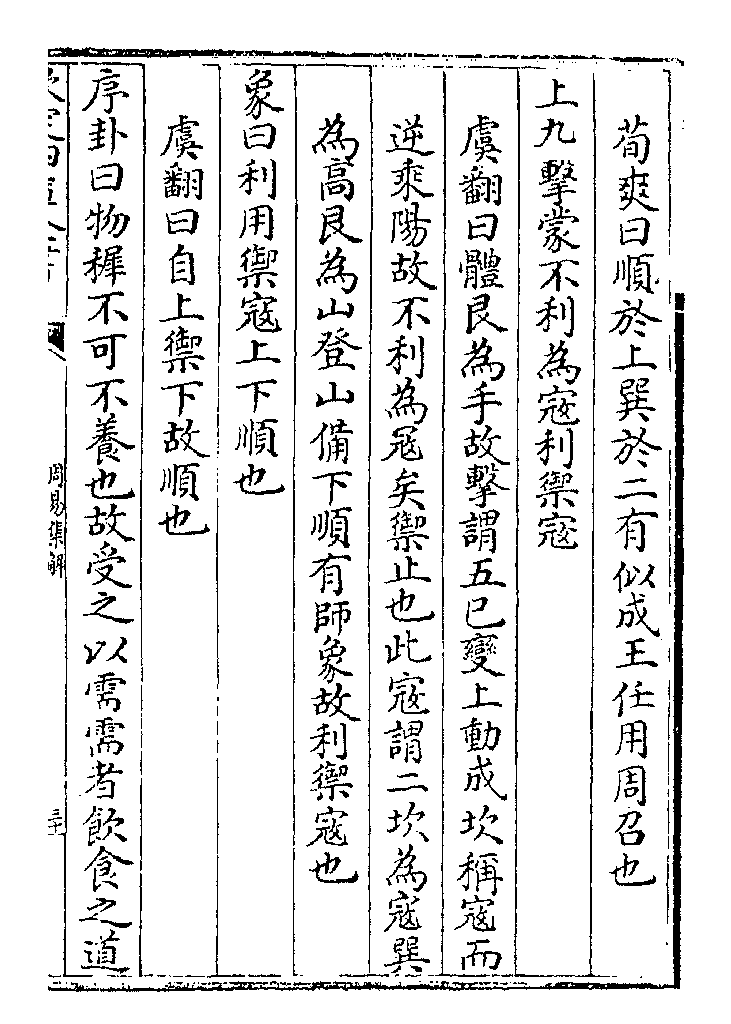 荀爽曰順於上巽於二有似成王任用周召也
上九擊蒙不利為寇利禦寇
虞翻曰體艮為手故擊謂五已變上動成坎稱寇而
逆乘陽故不利為寇矣禦止也此寇謂二坎為寇巽
為高艮為山登山備下順有師象故利禦寇也
象曰利用禦寇上下順也
虞翻曰自上禦下故順也
序卦曰物穉不可不養也故受之以需需者飲食之道
周易集解